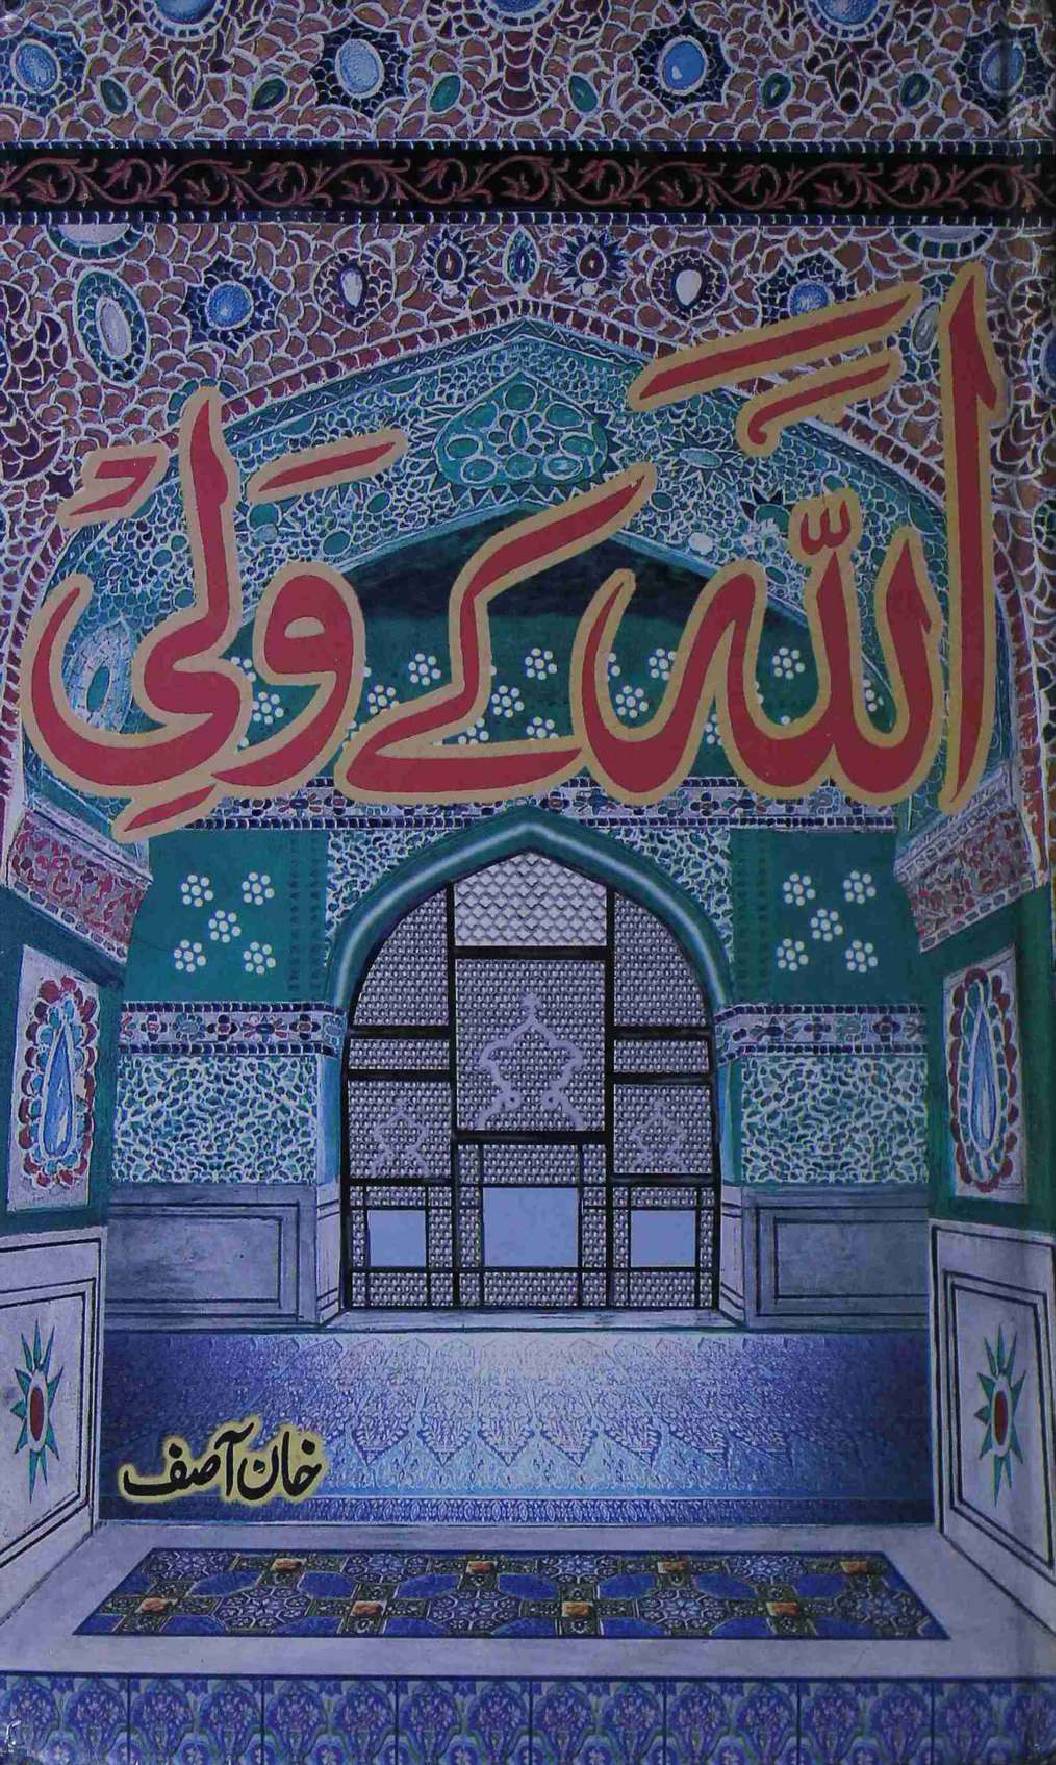 اللہ کے ولی
خان آصف